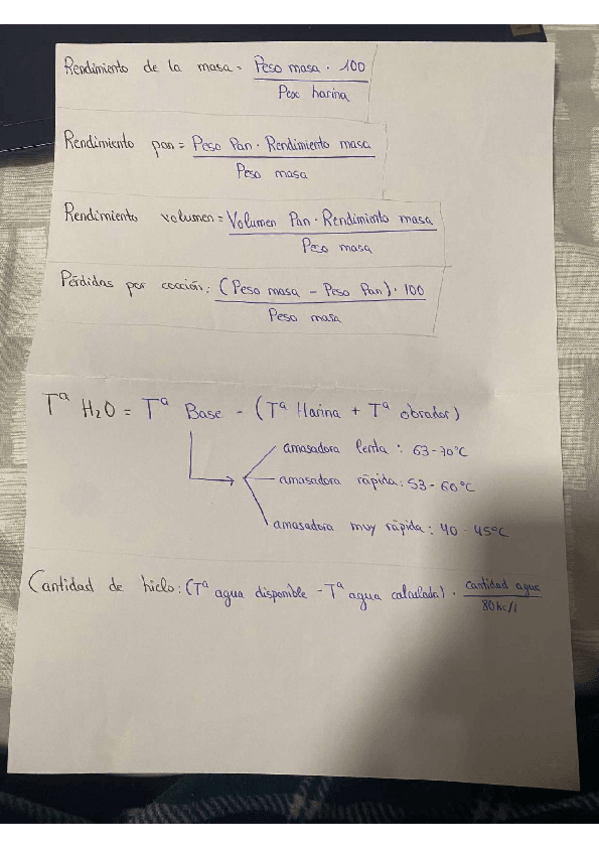 Rendimiento de la masa = Peso masa · 100
Peso harina
Rendimiento pan = Peso Pan · Rendimiento masa
Peso masa
Rendimiento volumen = Volumen Pan · Rendimiento masa
Peso masa
Pérdidas por cocción: (Peso masa - Peso Pan) · 100
Peso masa
Tª H₂O = Tª Base - (Tª Harina + Tª obrador)
amasadora lenta : 63-70ºC
amasadora rápida : 53-60ºC
amasadora muy rápida : 40-45ºC
Cantidad de hielo : (Tª agua disponible - Tª agua calculada) · cantidad agua
80 kc/l